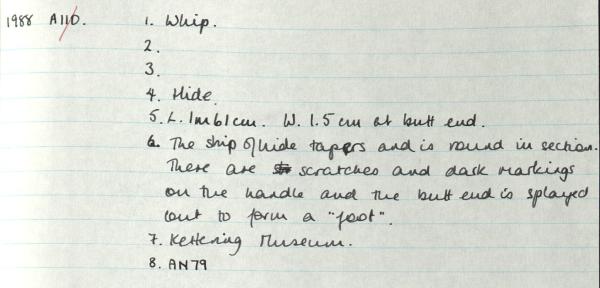 1988 A110. 1. Whip.
2.
3.
4. Hide
5. L. 1m61cm. W. 1.5 cm at butt end.
6. The ship of hide tapers and is round in section.
There are scratches and dark markings
on the handle and the butt end is splayed
out to form a "foot".
7. Kettering Museum.
8. AN79